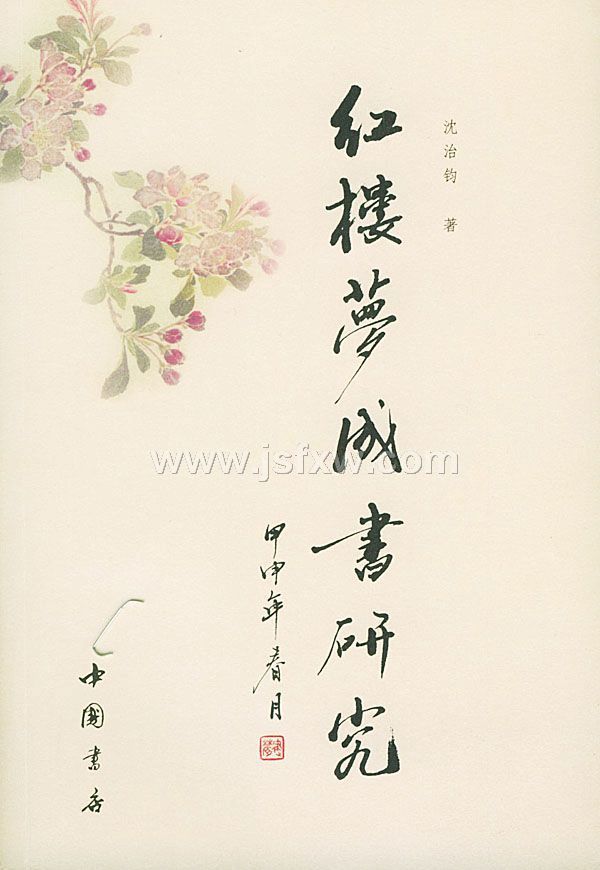 沈治钧 著
红楼夢成書研究
甲申年春月
中國書店
www.jsfxw.com